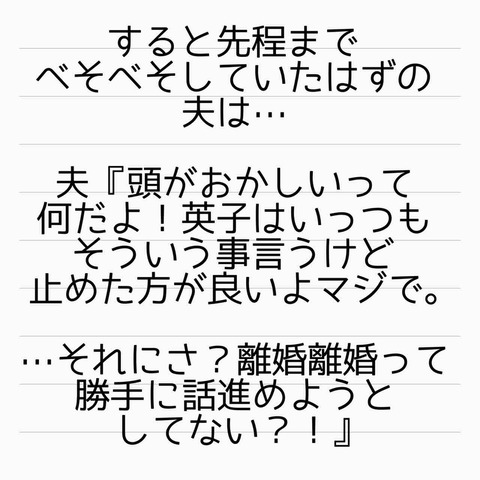 すると先程まで
べそべそしていたはずの
夫は…
夫『頭がおかしいって
何だよ！英子はいっつも
そういう事言うけど
止めた方が良いよマジで。
…それにさ？離婚離婚って
勝手に話進めようと
してない？！』